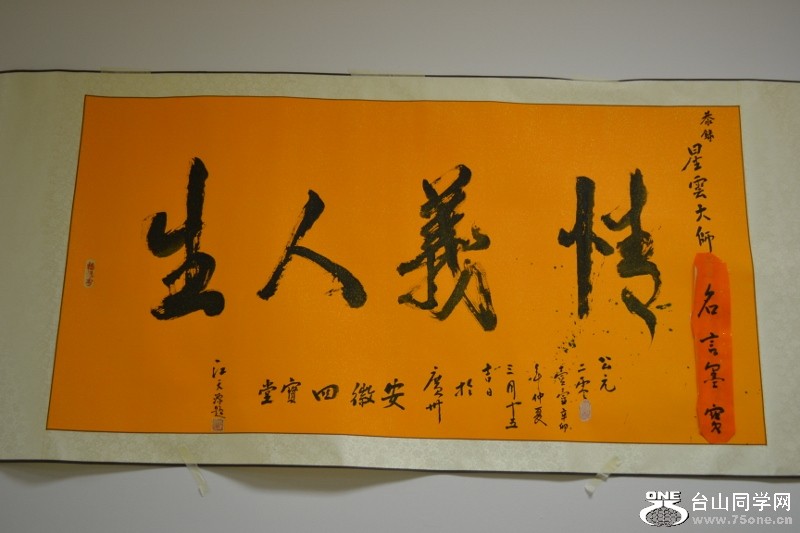 恭錄星雲大師名言墨寶
情義人生
公元
二零
年仲夏
三月十五
吉日
於
廣州
安徽四寶堂
ONE 台山同学网
www.75one.cn